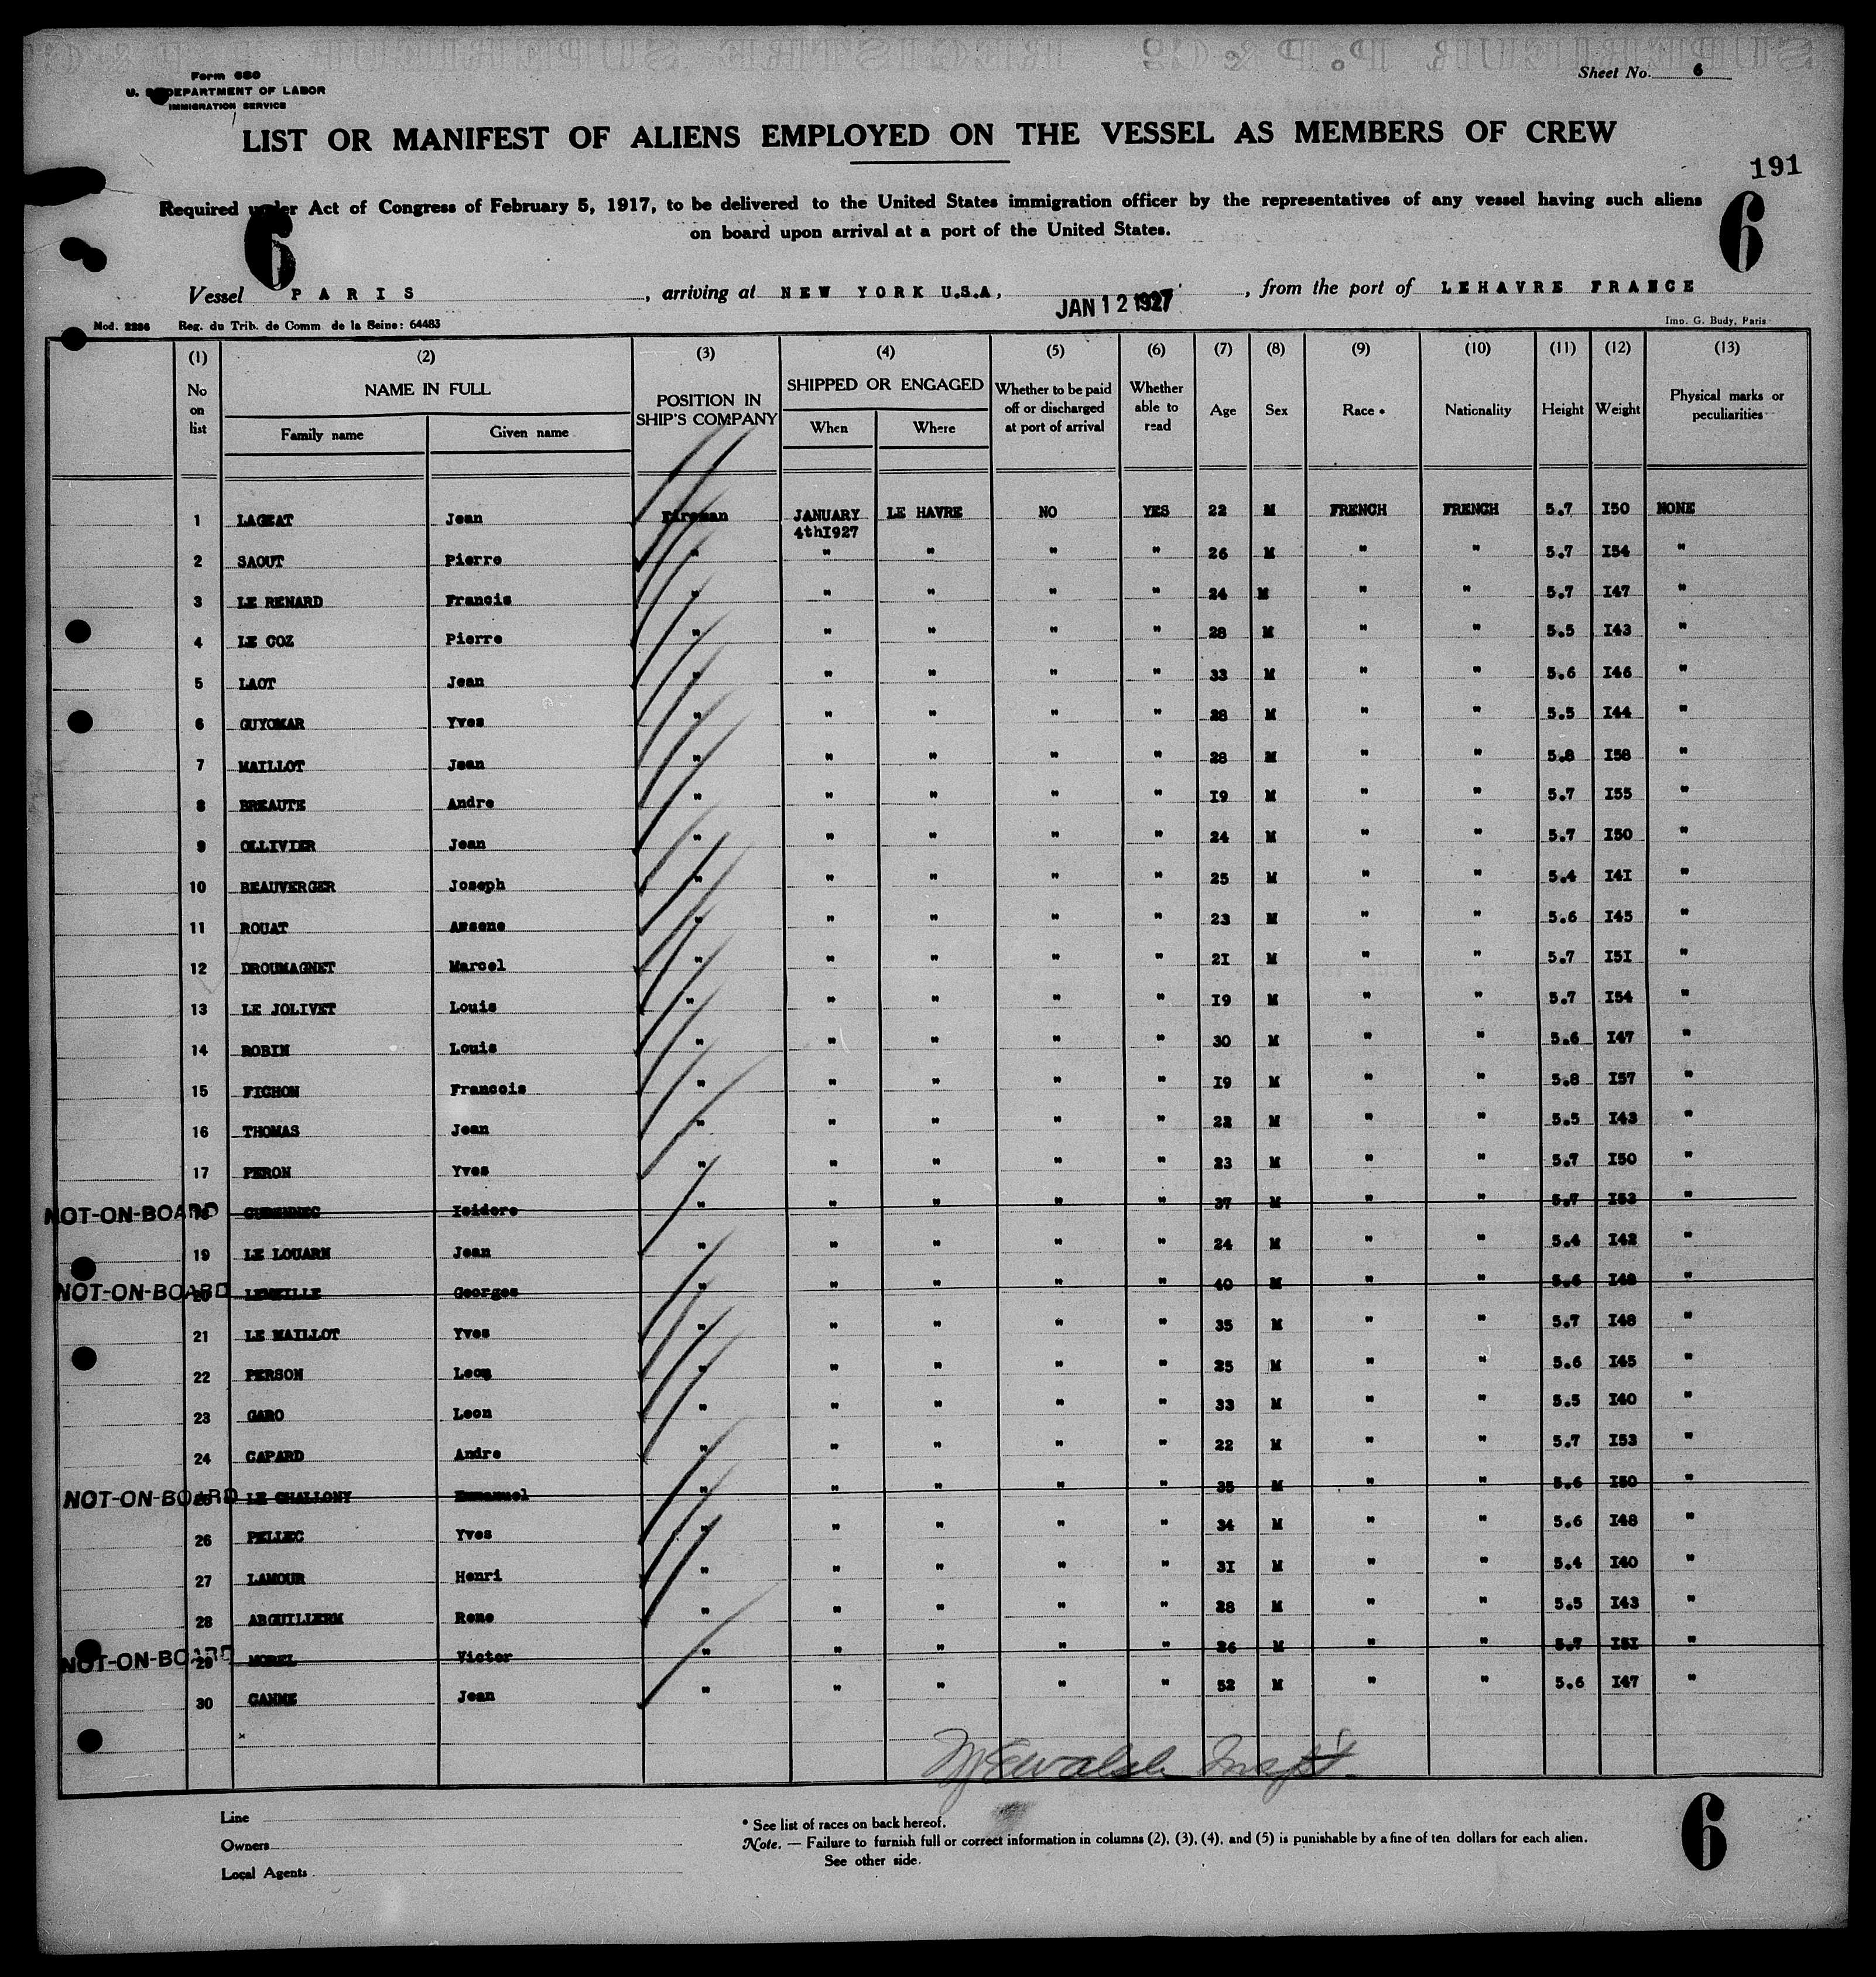 Form 680
U. S. DEPARTMENT OF LABOR
IMMIGRATION SERVICE
Sheet No. 6
LIST OR MANIFEST OF ALIENS EMPLOYED ON THE VESSEL AS MEMBERS OF CREW
191
Required under Act of Congress of February 5, 1917, to be delivered to the United States immigration officer by the representatives of any vessel having such aliens
on board upon arrival at a port of the United States.
6 6
Vessel PARIS, arriving at NEW YORK U.S.A, JAN 12 1927, from the port of LEHAVRE FRANCE
Mod. 2286 Reg. du Trib. de Comm. de la Seine: 64483 Imp. G. Budy, Paris
(1) (2) (3) (4) (5) (6) (7) (8) (9) (10) (11) (12) (13)
No on list NAME IN FULL Family name Given name POSITION IN SHIP'S COMPANY SHIPPED OR ENGAGED When Where Whether to be paid off or discharged at port of arrival Whether able to read Age Sex Race * Nationality Height Weight Physical marks or peculiarities
1 LAGEAT Jean Fireman JANUARY 4thI927 LE HAVRE NO YES 22 M FRENCH FRENCH 5.7 I50 NONE
2 SAOUT Pierre " " " " " 26 M " " 5.7 I54 "
3 LE RENARD Francis " " " " " 24 M " " 5.7 I47 "
4 LE COZ Pierre " " " " " 28 M " " 5.5 I43 "
5 LAOT Jean " " " " " 33 M " " 5.6 I46 "
6 GUYOMAR Yves " " " " " 28 M " " 5.5 I44 "
7 MAILLOT Jean " " " " " 28 M " " 5.8 I58 "
8 BREAUTE Andre " " " " " I9 M " " 5.7 I55 "
9 OLLIVIER Jean " " " " " 24 M " " 5.7 I50 "
10 BEAUVERGER Joseph " " " " " 25 M " " 5.4 I4I "
11 ROUAT Arsene " " " " " 23 M " " 5.6 I45 "
12 DROUMAGNET Marcel " " " " " 2I M " " 5.7 I5I "
13 LE JOLIVET Louis " " " " " I9 M " " 5.7 I54 "
14 ROBIN Louis " " " " " 30 M " " 5.6 I47 "
15 FICHON Francois " " " " " I9 M " " 5.8 I57 "
16 THOMAS Jean " " " " " 22 M " " 5.5 I43 "
17 PERON Yves " " " " " 23 M " " 5.7 I50 "
NOT-ON-BOARD 18 Isidore " " " " " 37 M " " 5.7 I52 "
19 LE LOUARN Jean " " " " " 24 M " " 5.4 I42 "
NOT-ON-BOARD 20 LEMEILLE Georges " " " " " 40 M " " 5.6 I48 "
21 LE MAILLOT Yves " " " " " 35 M " " 5.7 I48 "
22 PERSON Leon " " " " " 25 M " " 5.6 I45 "
23 GARO Leon " " " " " 33 M " " 5.5 I40 "
24 CAPARD Andre " " " " " 22 M " " 5.7 I53 "
NOT-ON-BOARD 25 LE CHALLONY Emmanuel " " " " " 35 M " " 5.6 I50 "
26 PELLEC Yves " " " " " 34 M " " 5.6 I48 "
27 LAMOUR Henri " " " " " 3I M " " 5.4 I40 "
28 ABGUILLERM Rene " " " " " 28 M " " 5.5 I43 "
NOT-ON-BOARD 29 MOREL Victor " " " " " 26 M " " 5.7 I5I "
30 CANME Jean " " " " " 52 M " " 5.6 I47 "
Walsh Inspt.
Line
Owners
Local Agents
* See list of races on back hereof.
Note. — Failure to furnish full or correct information in columns (2), (3), (4), and (5) is punishable by a fine of ten dollars for each alien.
See other side.
6